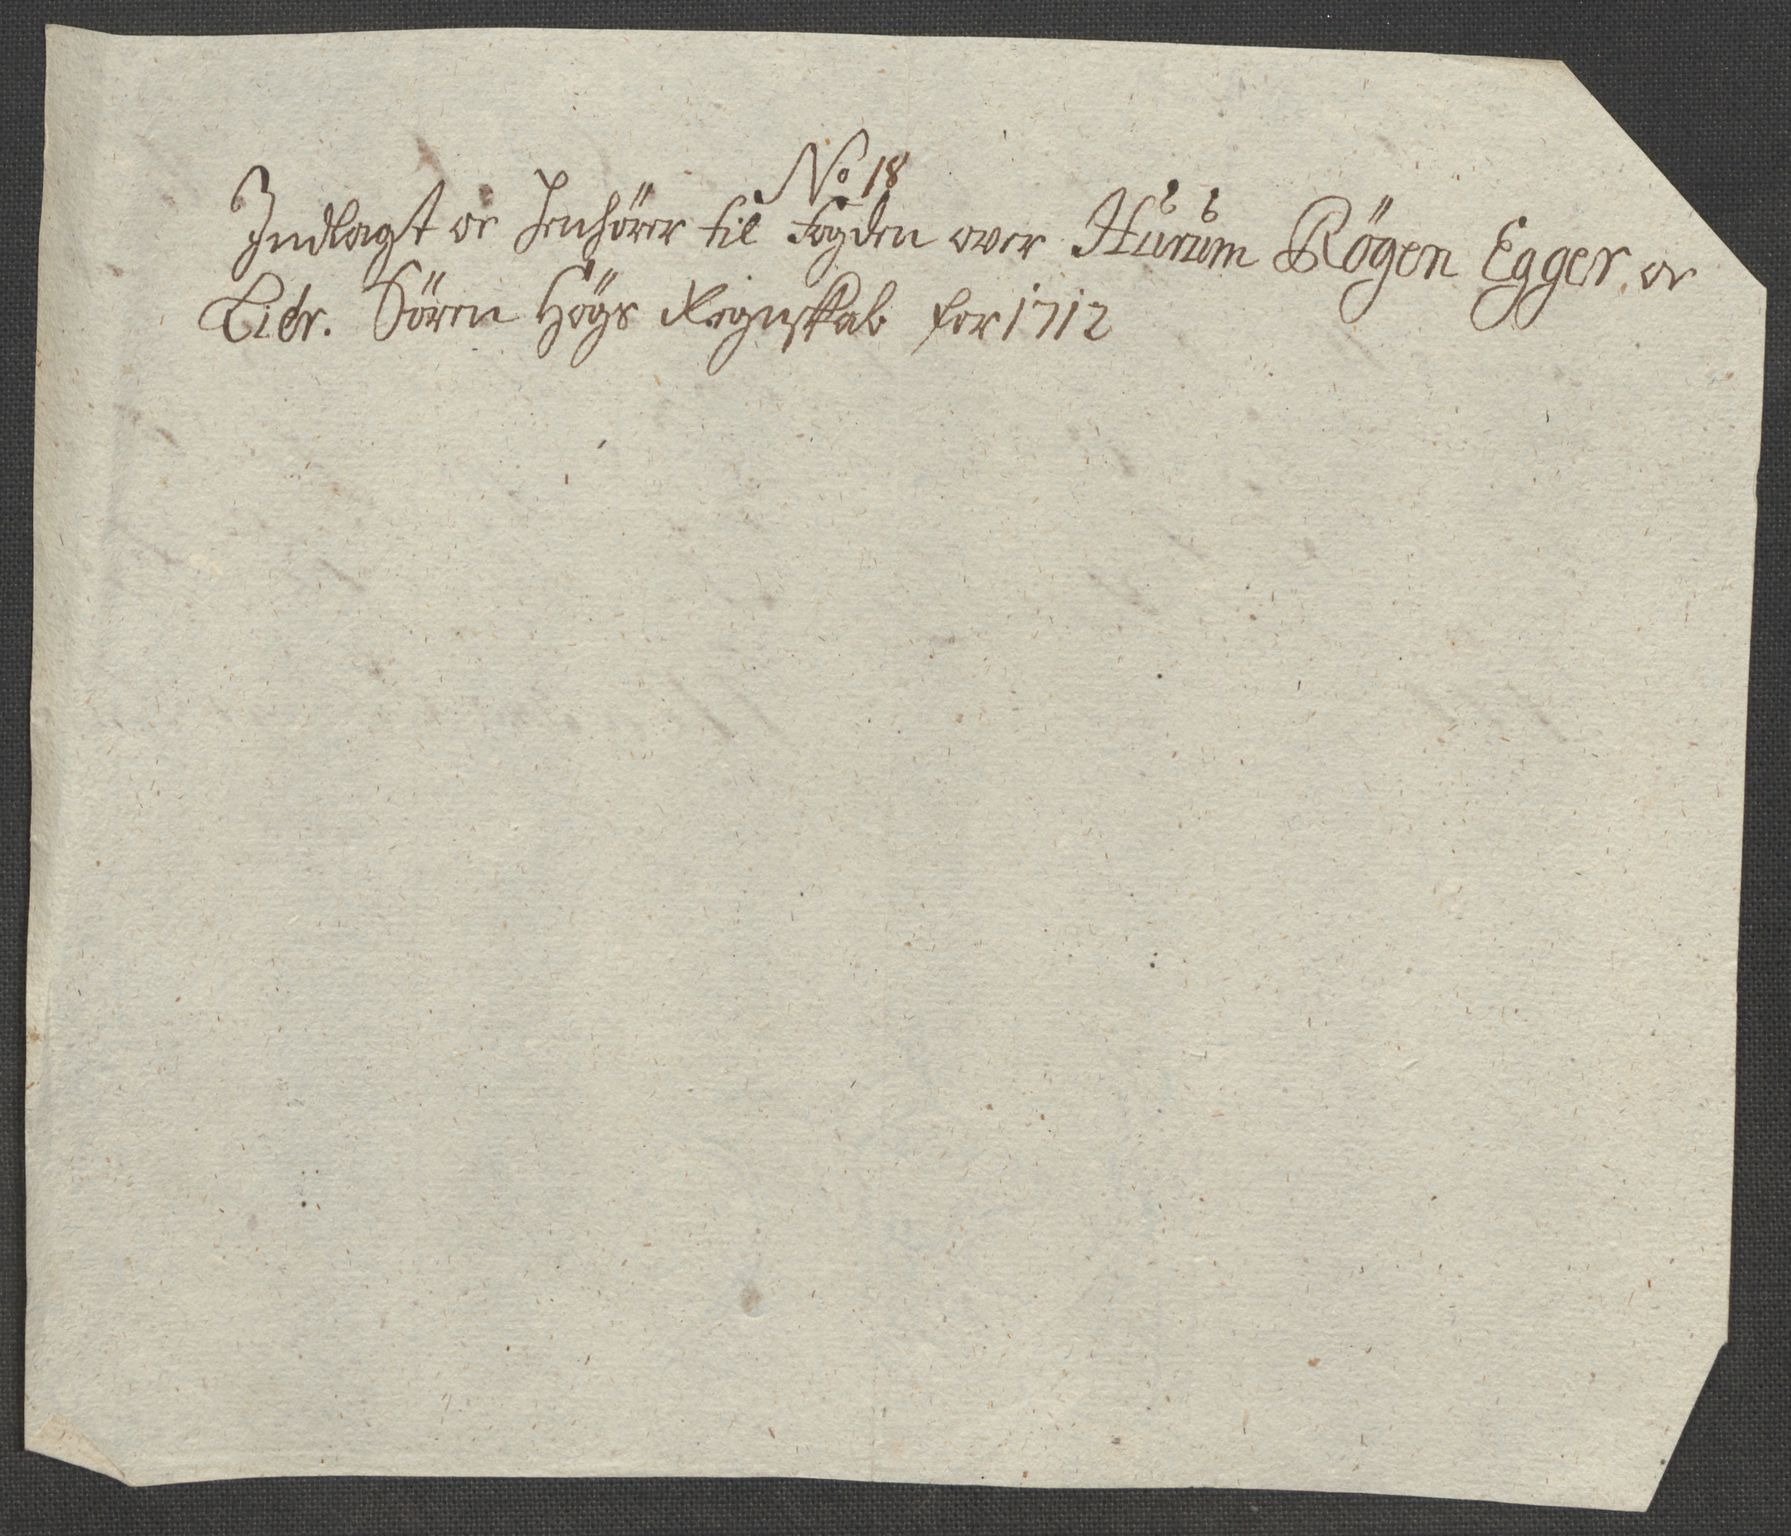 No 18
Indlagt oc henhörer til Fogden over Hurum Rögen Egger oc
Lier. Sören Högs Regnskab for 1712